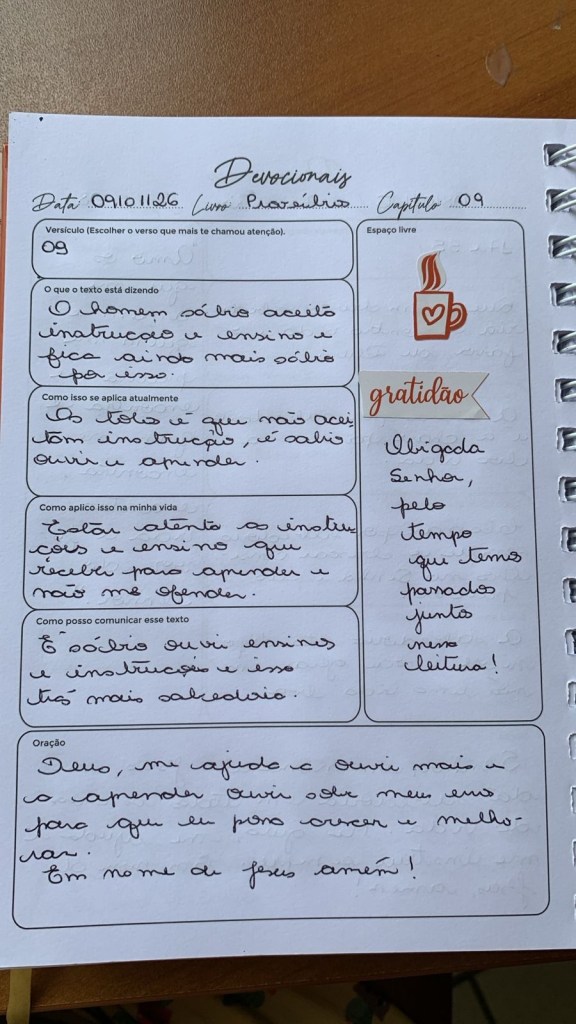 Devocionais
Data 09/01/26 Livro Provérbios Capítulo 09
Versículo (Escolher o verso que mais te chamou atenção).
09
O que o texto está dizendo
O homem sábio aceita
instrução e ensino e
fica ainda mais sábio
por isso.
Como isso se aplica atualmente
Os tolo é que não acei-
tam instrução, é sabio
ouvir e aprender.
Como aplico isso na minha vida
Estar atento as instru-
ções e ensino que
receber para aprender e
não me ofender.
Como posso comunicar esse texto
É sábio ouvir ensinos
e instrução e isso
trás mais sabedoria.
Espaço livre
gratidão
Obigada
Senhor,
pelo
tempo
que temos
passados
juntos
nessa
leitura!
Oração
Deus, me ajuda a ouvir mais e
a aprender ouvir sobre meus erros
para que eu possa crescer e melho-
rar.
Em nome de Jesus amém!